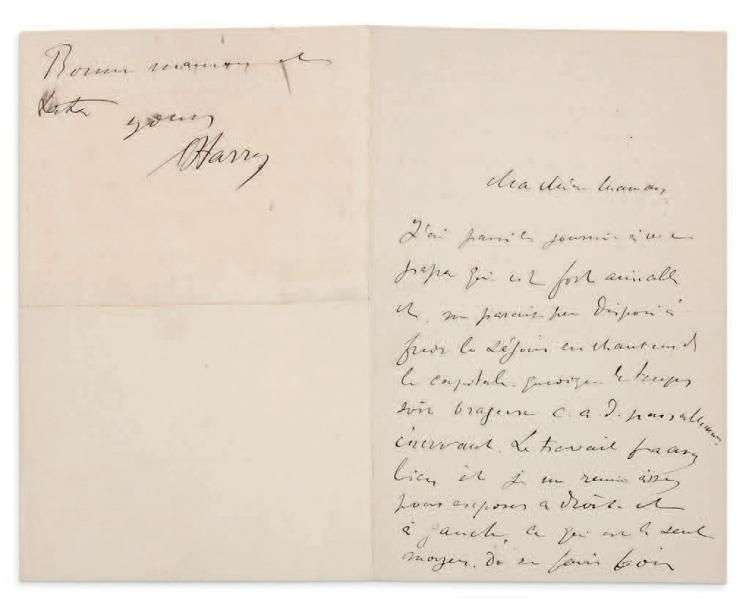 Bonne maman et
yours
Harry
Ma chère Maman,
J'ai passé la journée avec
papa qui est fort aimable
et ne parait peu disposé à
fuir le séjour enchanteur de
la capitale quoique le temps
soit orageux c. a. d. passablement
énervant. Le travail
bien et je me remue assez
pour exposer à droite et
à gauche, ce qui est le seul
moyen de se faire voir